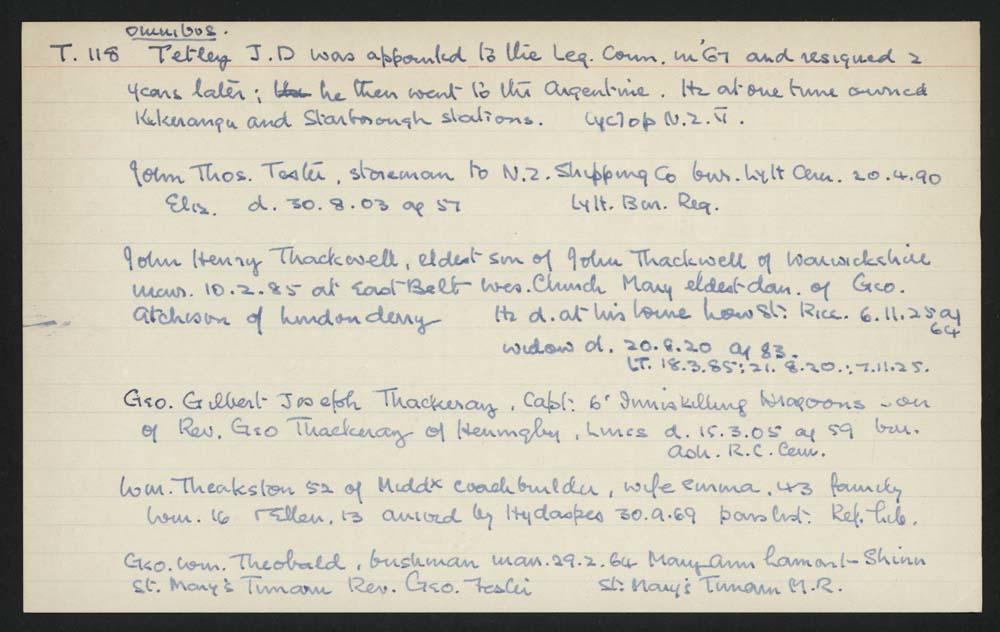 omnibus.
T. 118 Tetley J.D was appointed to the Leg. Coun. in '67 and resigned 2
years later; he then went to the Argentine. He at one time owned
Kekerangu and Starborough stations. Cyclop N.Z. V.
John Thos. Teste, storeman to N.Z. Shipping Co bur. Lytt Cem. 20.4.90
Eliz. d. 30.8.03 ag 57 Lytt. Bur. Reg.
John Henry Thackwell, eldest son of John Thackwell of Warwickshire
marr. 10.2.85 at East Belt Wes. Church Mary eldest dau. of Geo.
Atchison of Londonderry He d. at his home St: Ricc. 6.11.25 ag
64
widow d. 20.8.20 ag 83.
LT. 18.3.85; 21.8.20.; 7.11.25.
Geo. Gilbert Joseph Thackeray, Capt: 6' Inniskilling Dragoons son
of Rev. Geo Thackeray of Hemingby, Lincs d. 15.3.05 ag 59 bur.
Ash. R.C. Cem.
Wm. Theakston 52 of Middx coachbuilder, wife Emma, 43 family
Wm. 16 Ellen, 13 arrived by Hydaspes 30.9.69 pass list. Ref. Lib.
Geo. Wm. Theobald, bushman marr. 29.2.64 Mary Ann Lamont Shinn
St. Mary's Timaru Rev. Geo. Foster St: Mary's Timaru M.R.